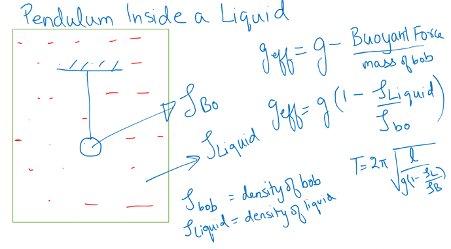 Pendulum Inside a Liquid
g_eff = g - Buoyant Force / mass of bob
ρ_Bo
g_eff = g (1 - ρ_Liquid / ρ_bo)
ρ_Liquid
T = 2π √(l / g(1 - ρ_L / ρ_B))
ρ_bob = density of bob
ρ_Liquid = density of liquid